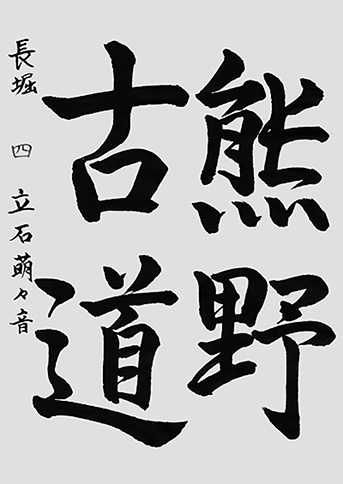 熊野
古道
長堀 四 立石萌々音